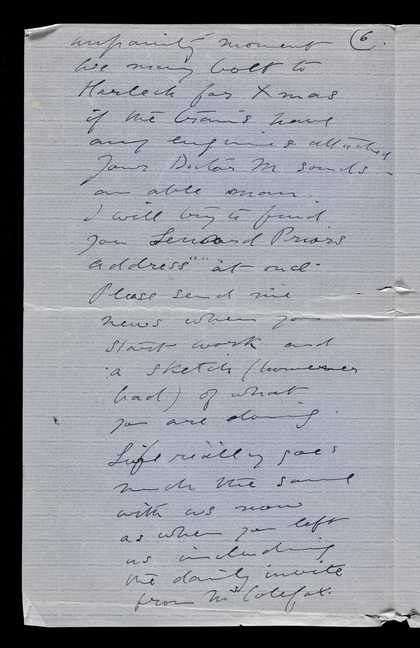 unfainity moment (6.
We may bolt to
Harlech for Xmas
if the trains have
any engines attached
Your Doctor M. sounds
an able man.
I will try to find
you Lennard Priors
address at once.
Please send me
news when you
start work and
a sketch (however
bad) of what
you are doing.
Life really goes
much the same
with us now
as when you left
us including
the daily invite
from Mrs Colefax.